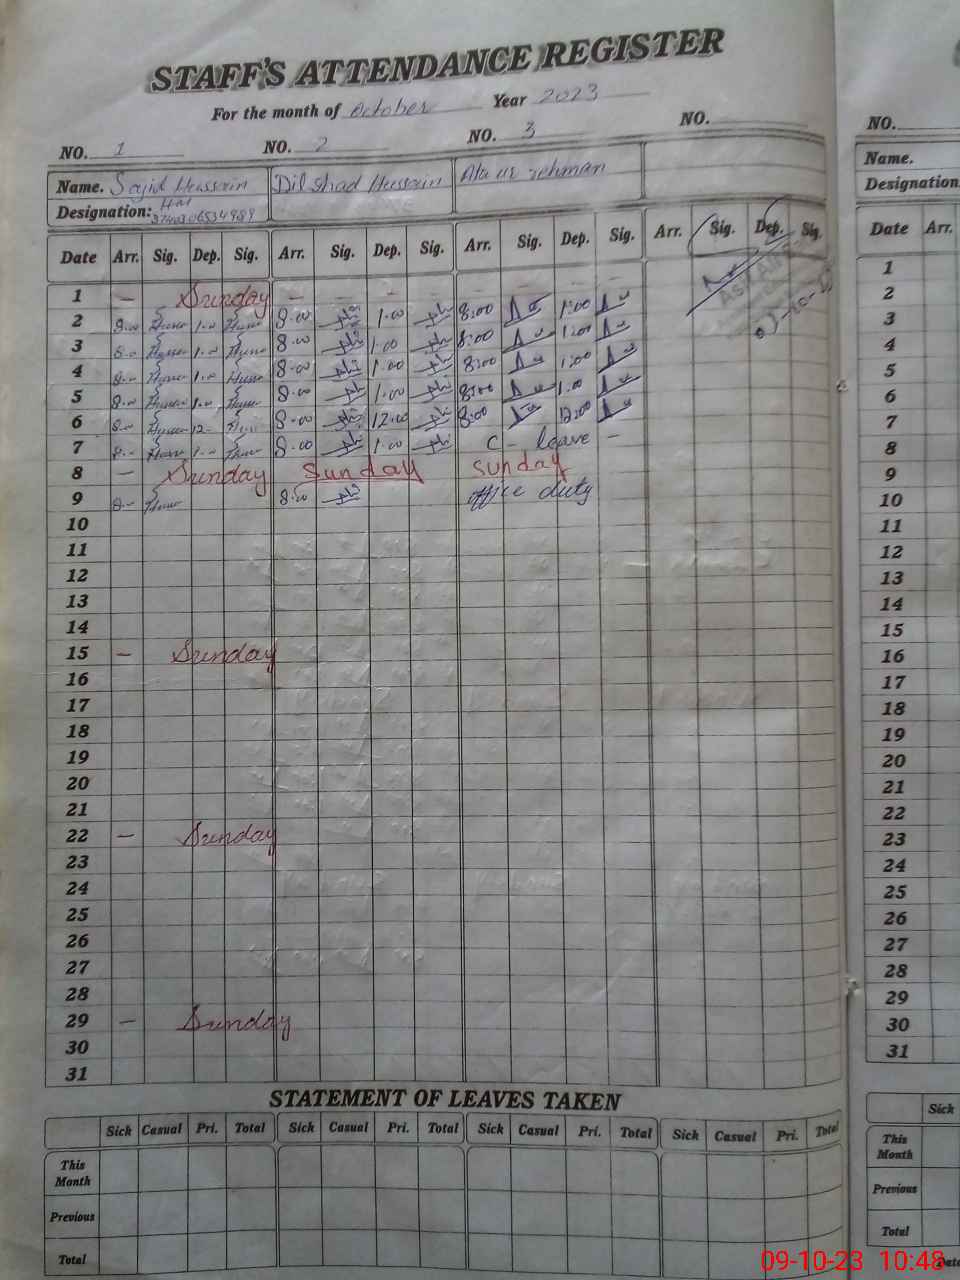 STAFF'S ATTENDANCE REGISTER
For the month of October Year 2023
NO. 1 NO. 2 NO. 3 NO. NO.
Name. Sajid Hussain Dilshad Hussain Ata ur rehman Name.
Designation: HM Designation:
Date Arr. Sig. Dep. Sig. Arr. Sig. Dep. Sig. Arr. Sig. Dep. Sig. Arr. Sig. Dep. Sig. Date Arr.
1 — Sunday — — — — — — — — 1
2 8.00 1.00 8.00 1.00 8:00 1:00 2
3 8.00 1.00 8.00 1.00 8:00 1:00 3
4 8.00 1.00 8.00 1.00 8:00 1:00 4
5 8.00 1.00 8.00 1.00 8:00 1.00 5
6 8.00 12.00 8.00 12.00 8:00 12:00 6
7 8.00 1.00 8.00 1.00 C - leave - 7
8 — Sunday Sunday Sunday 8
9 8.00 8.00 office duty 9
10 10
11 11
12 12
13 13
14 14
15 — Sunday 15
16 16
17 17
18 18
19 19
20 20
21 21
22 — Sunday 22
23 23
24 24
25 25
26 26
27 27
28 28
29 — Sunday 29
30 30
31 31
STATEMENT OF LEAVES TAKEN
Sick Casual Pri. Total Sick Casual Pri. Total Sick Casual Pri. Total Sick Casual Pri. Total Sick
This Month This Month
Previous Previous
Total Total
09-10-23 10:48